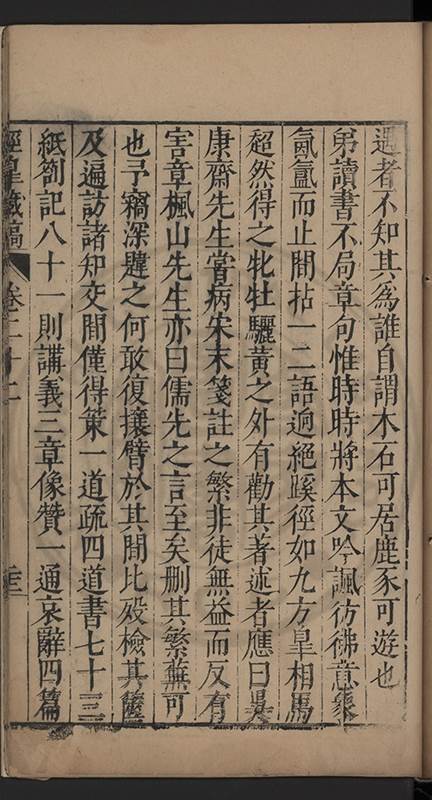 遇者不知其為誰自謂木石可居鹿豕可遊也
弟讀書不局章句惟時時將本文吟諷彷彿意象
氤氳而止間拈一二語逈絕蹊徑如九方臯相馬
超然得之牝牡驪黃之外有勸其著述者應曰吳
康齋先生嘗病宋末箋註之繁非徒無益而反有
害章楓山先生亦曰儒先之言至矣刪其繁蕪可
也予竊深韙之何敢復攘臂於其間比歿檢其篋
及遍訪諸知交間僅得策一道疏四道書七十三
紙劄記八十一則講義三章像贊一通哀辭四篇
涇皐藏稿 卷二十二 二三